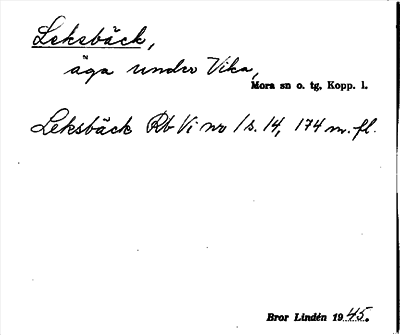 Leksbäck,
äga under Vika,
Mora sn o. tg, Kopp. l.
Leksbäck Rb Vi no 1 s. 14, 174 m. fl.
Bror Lindén 1945.